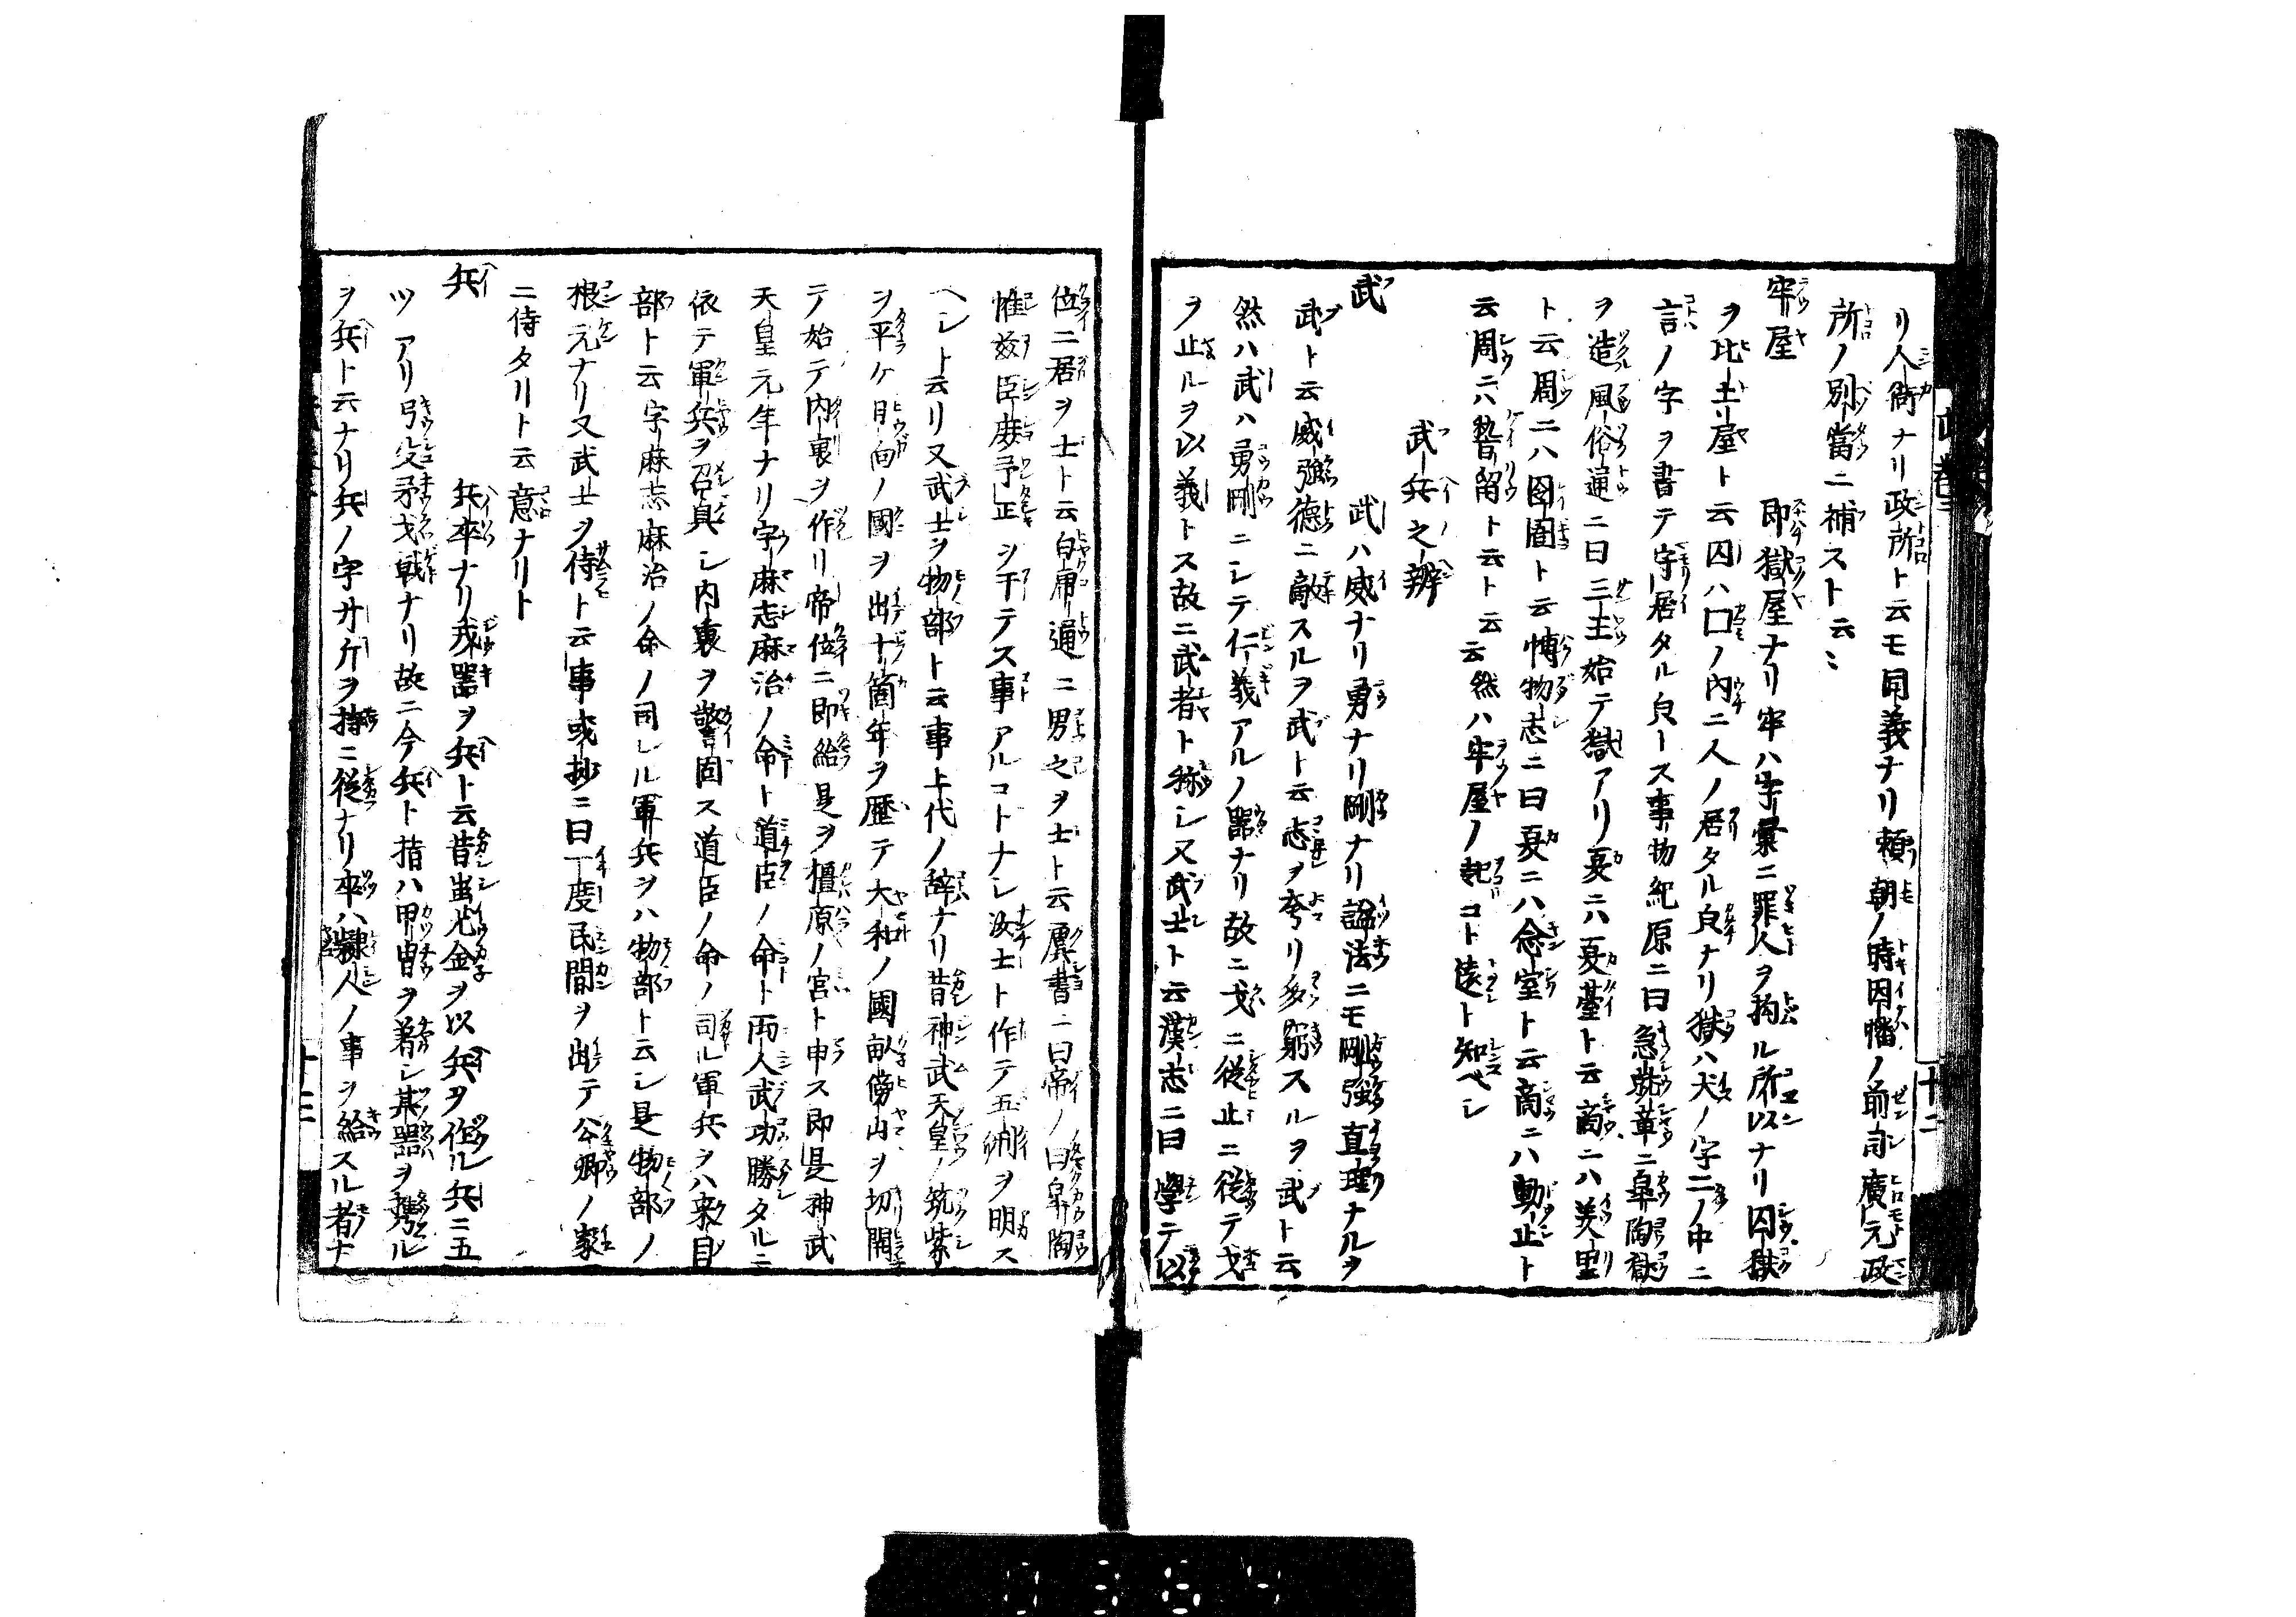 リ人衙ナリ政所ト云モ同義ナリ頼朝ノ時因幡ノ前司廣元政
所ノ別當ニ補スト云〻
牢屋　即獄屋ナリ牢ハ字彙ニ罪人ヲ拘ル所以ナリ囚獄
ヲ比土屋ト云囚ハ口ノ内ニ人ノ居タル皃ナリ獄ハ犬ノ字二ノ中ニ
言ノ字ヲ書テ守居タル皃ース事物紀原ニ曰急就章ニ皐陶獄
ヲ造風俗通ニ曰三王始テ獄アリ夏ニハ夏臺ト云商ニハ羑里
ト云周ニハ囹圄ト云博物志ニ曰夏ニハ念室ト云商ニハ動止ト
云周ニハ嵆留ト云ト云云然ハ牢屋ノ起コト遠ト知ベシ
武兵之辨
武　武ハ威ナリ勇ナリ剛ナリ諡法ニモ剛強直理ナルヲ
武ト云威強德ニ敵スルヲ武ト云志ヲ夸リ多窮スルヲ武ト云
然ハ武ハ勇剛ニシテ仁義アルノ器ナリ故ニ戈ニ從止ニ從テ戈
ヲ止ルヲ以義トス故ニ武者ト称シ又武士ト云漢志ニ曰學テ以
位ニ居ヲ士ト云白虎通ニ男之ヲ士ト云虞書ニ曰帝ノ曰皐陶
惟茲臣庶予正ヲ干テス事アルコトナシ汝士ト作テ五刑ヲ明ス
ヘシト云リ又武士ヲ物部ト云事上代ノ辞ナリ昔神武天皇ノ筑紫
ヲ平ケ日向ノ國ヲ出十箇年ヲ歴テ大和ノ國畝傍山ヲ切開
テ始テ内裏ヲ作リ帝位ニ即給是ヲ橿原ノ宮ト申ス即是神武
天皇元年ナリ宇麻志麻治ノ命ト道臣ノ命ト両人武功勝タルニ
依テ軍兵ヲ召具シ内裏ヲ警固ス道臣ノ命ノ司ル軍兵ヲハ来目
部ト云宇麻志麻治ノ命ノ司レル軍兵ヲハ物部ト云シ是物部ノ
根元ナリ又武士ヲ侍ト云事或抄ニ曰丁度民間ヲ出テ公卿ノ家
ニ侍タリト云意ナリト
兵　兵卒ナリ戎器ヲ兵ト云昔蚩尤金ヲ以兵ヲ作ル兵ニ五
ツアリ弓殳矛戈戟ナリ故ニ今兵ト指ハ甲冑ヲ着シ其器ヲ携ル
ヲ兵ト云ナリ兵ノ字廾斤ヲ持ニ從ナリ卒ハ隸人ノ事ヲ給スル者ナ
十二